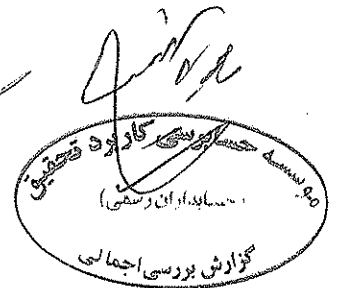 موسسه حسابرسی کاربرد تحقیق
(حسابداران رسمی)
گزارش بررسی اجمالی